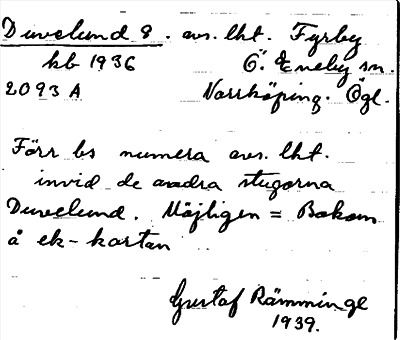 Duvelund 8. avs. lht. Fyrby
kb 1936 Ö. Eneby sn.
2093 A Norrköping. Ögl.
Förr bs numera avs. lht.
invid de andra stugorna
Duvelund. Möjligen = Bakom
å ek-kartan
Gustaf Rämminge
1939.